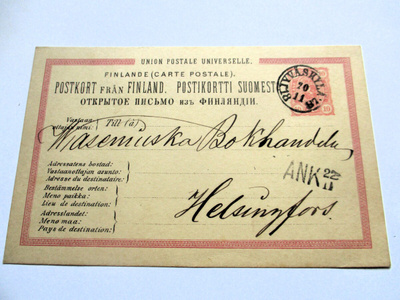 UNION POSTALE UNIVERSELLE.
FINLANDE (CARTE POSTALE).
POSTKORT FRÅN FINLAND. POSTIKORTTI SUOMESTA
ОТКРЫТОЕ ПИСЬМО изъ ФИНЛЯНДІИ.
Till (à)
Bokhandeln
Adressatens bostad:
Vastaanottajan asunto:
Adresse du destinataire:
Bestämmelse orten:
Meno paikka:
Lieu de destination:
ANK 22/11
Helsingfors.
Adresslandet:
Meno maa:
Pays de destination: